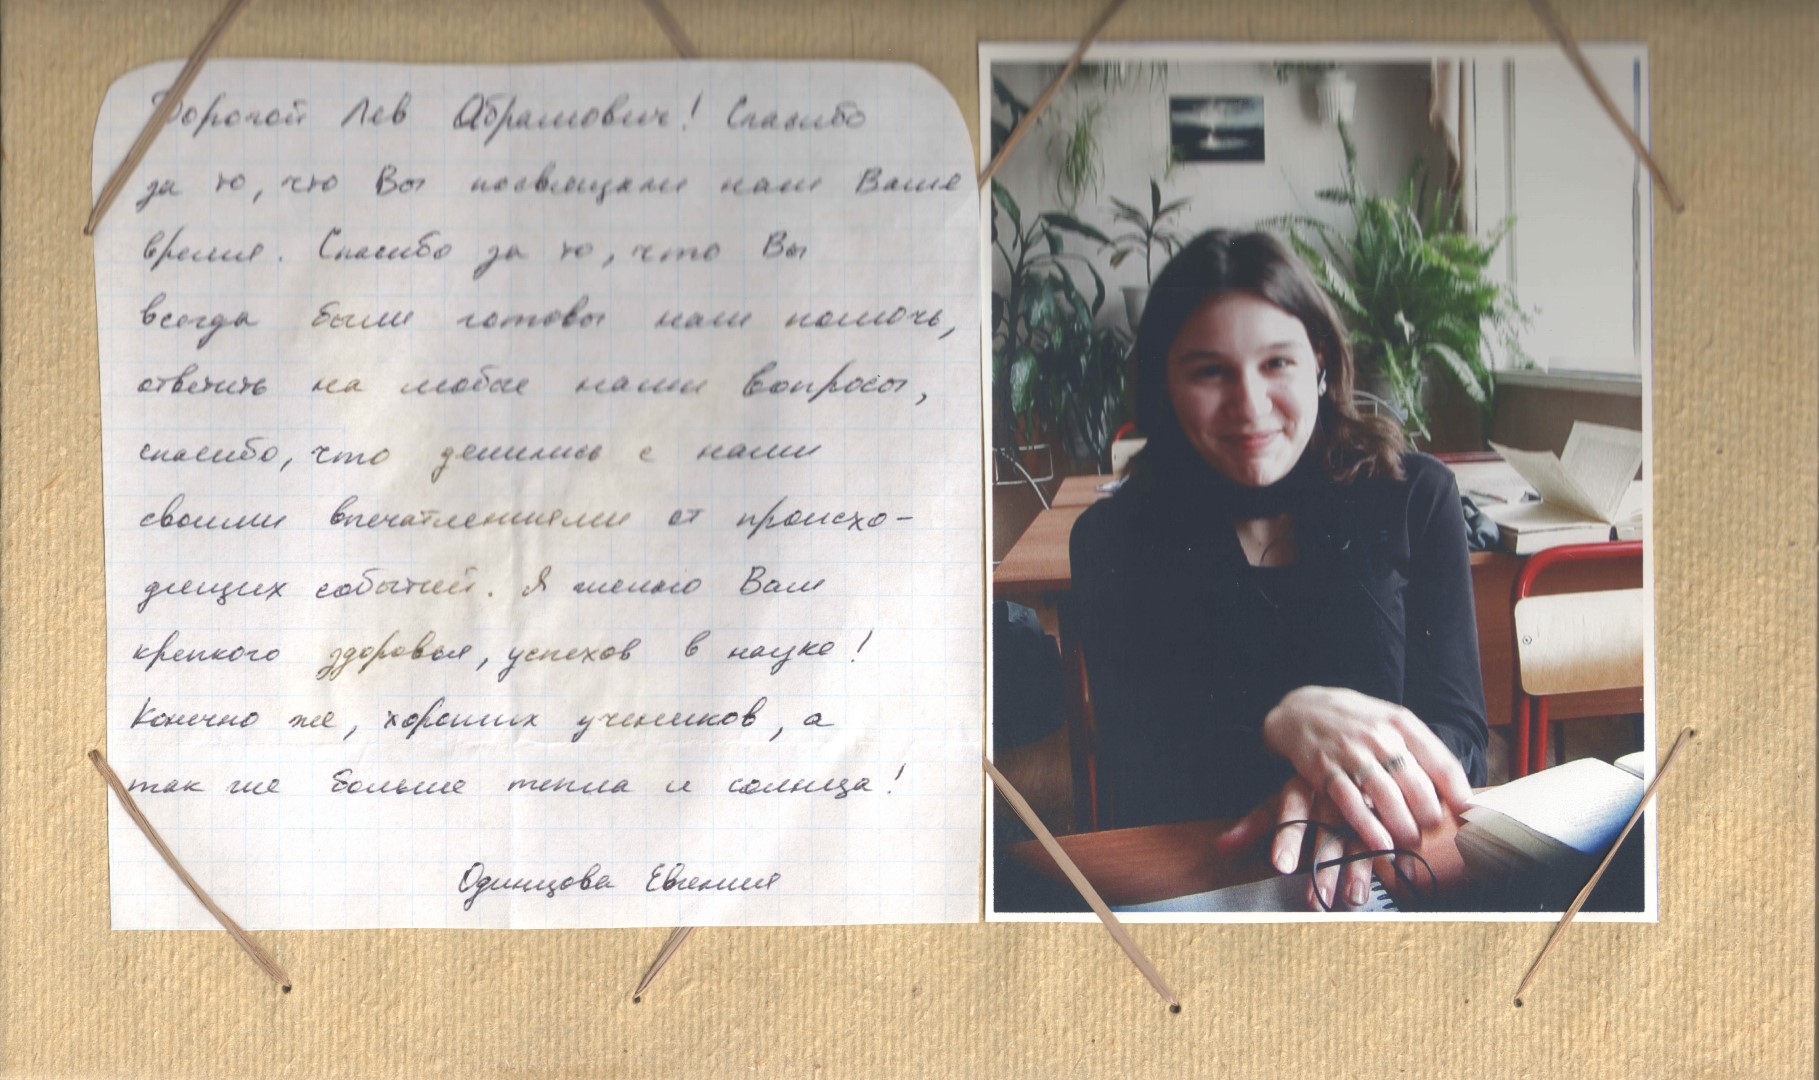 Дорогой Лев Абрамович! Спасибо
за то, что Вы посвящали нам Ваше
время. Спасибо за то, что Вы
всегда были готовы нам помочь,
ответить на любые наши вопросы,
спасибо, что делились с нами
своими впечатлениями от происхо-
дящих событий. Я желаю Вам
крепкого здоровья, успехов в науке!
Конечно же, хороших учеников, а
так же больше тепла и солнца!
Одинцова Евгения